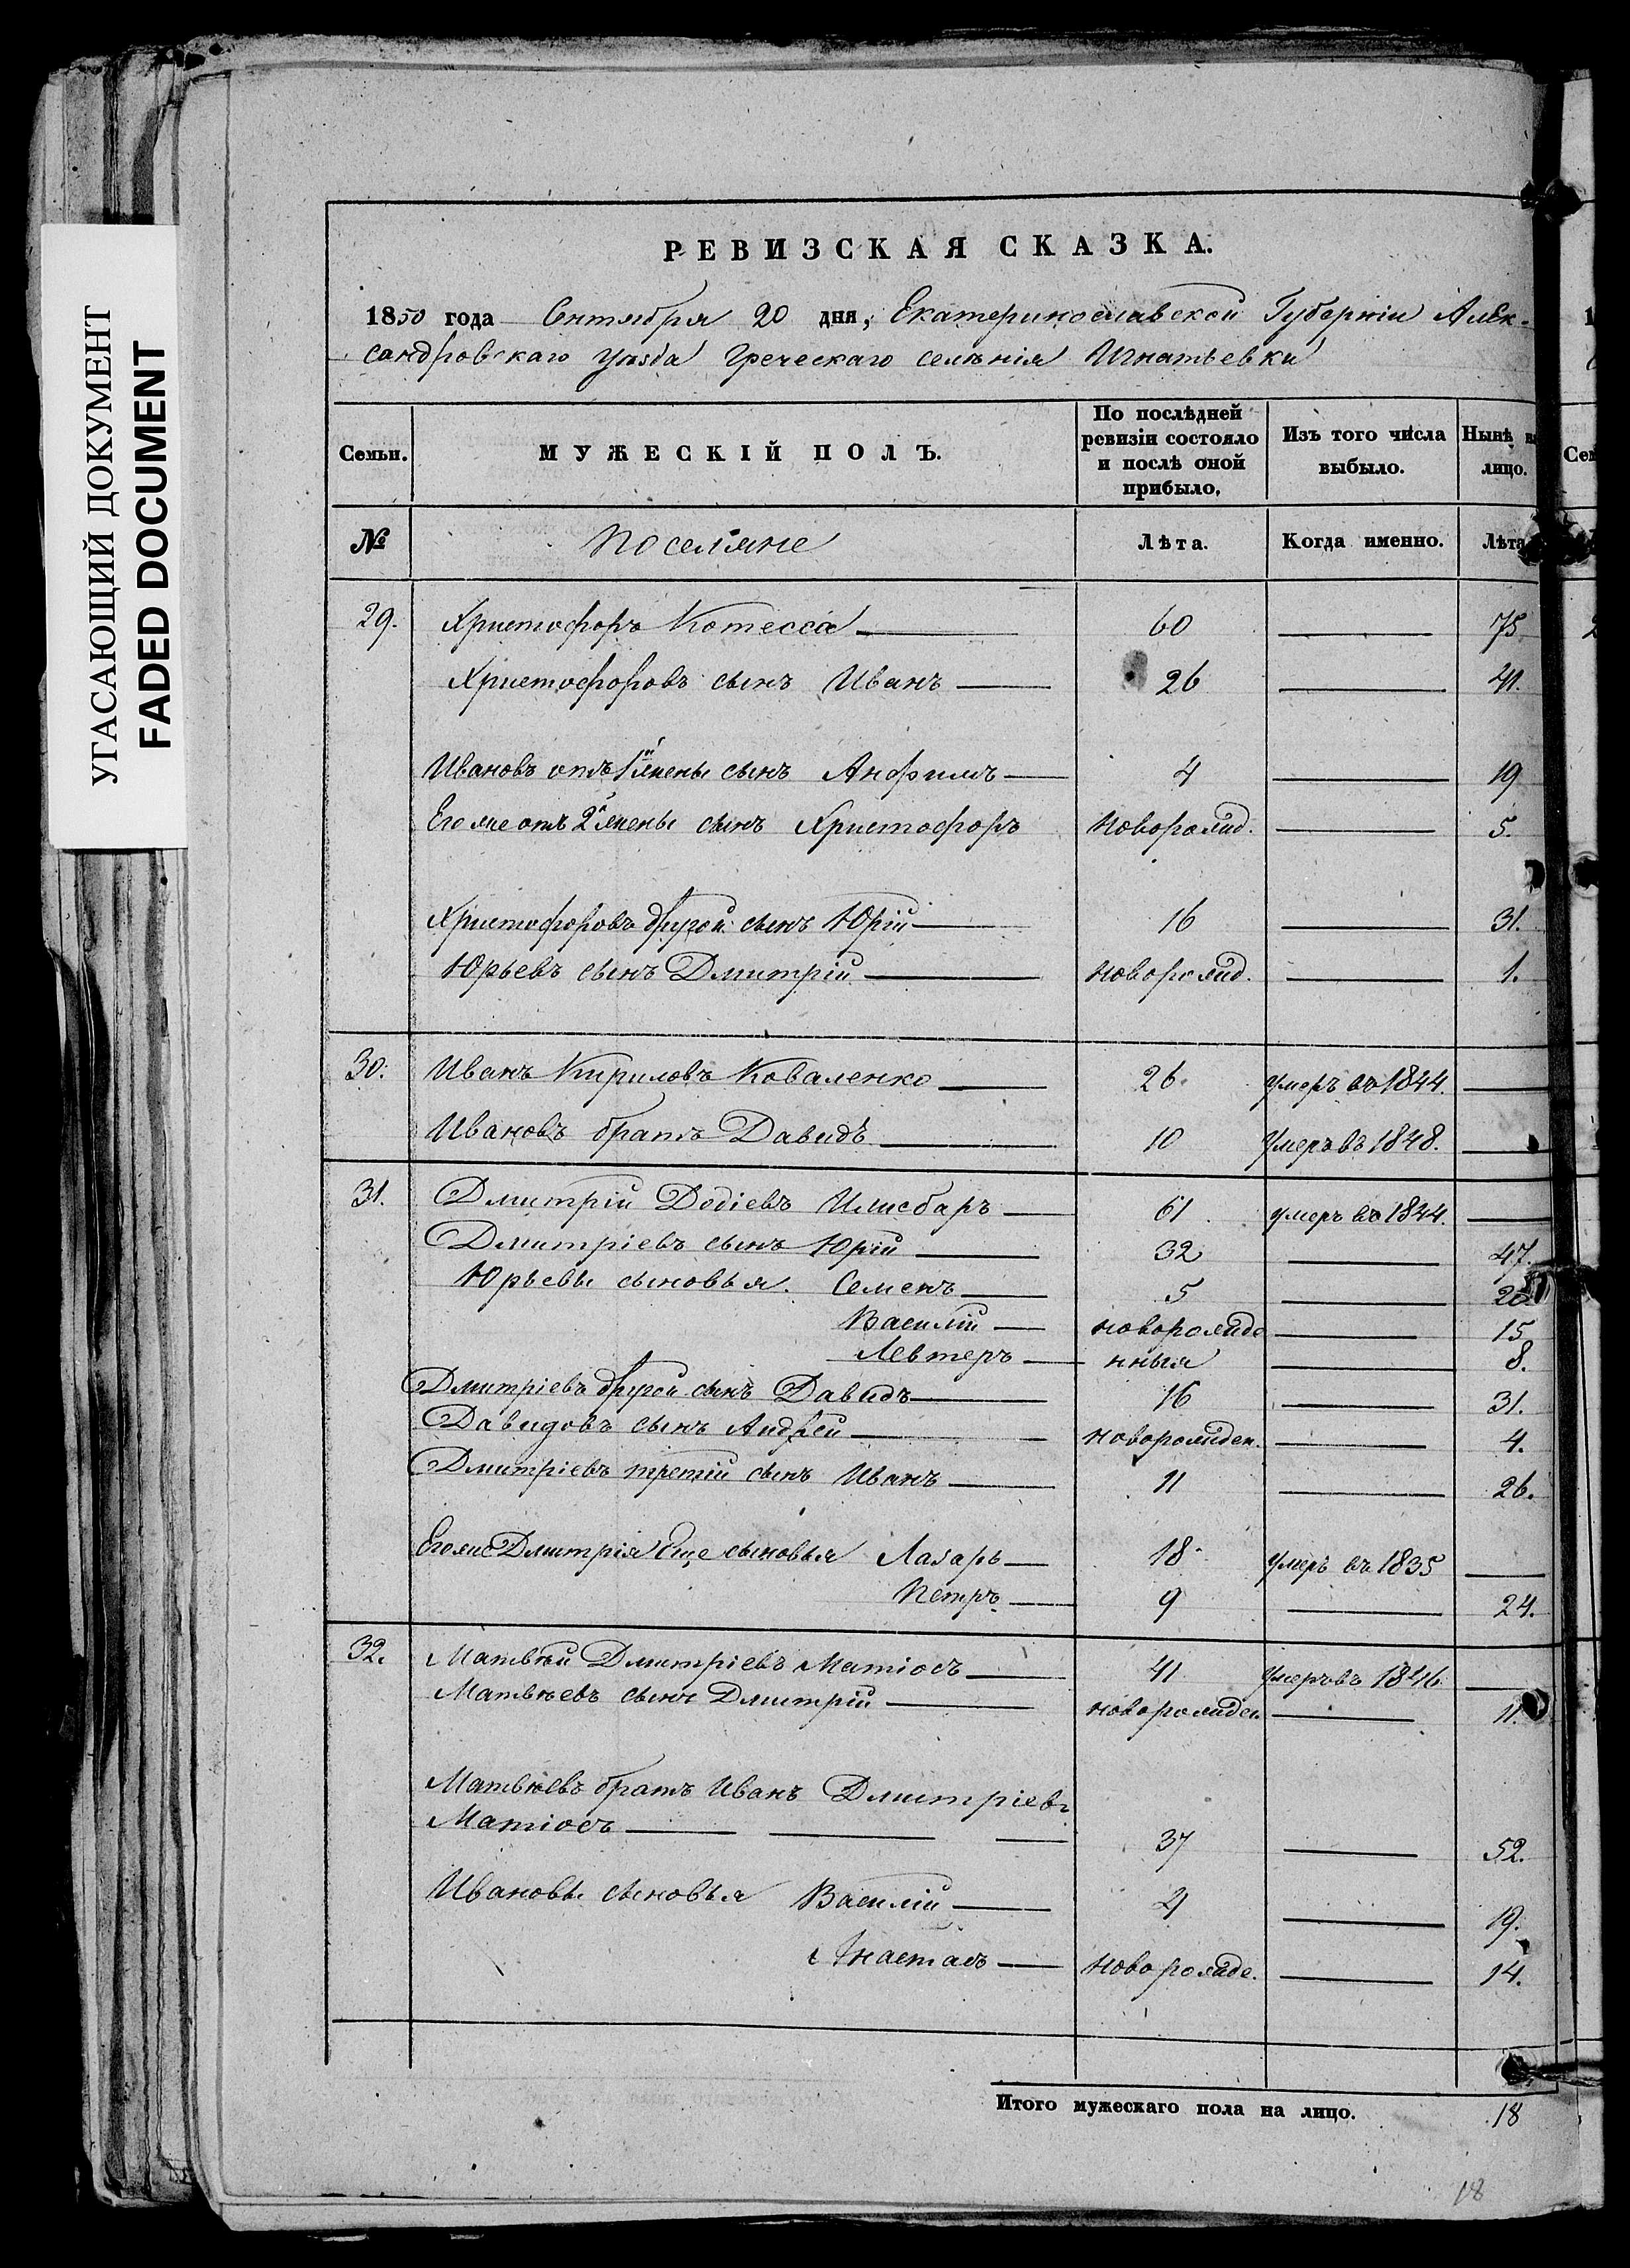 УГАСАЮЩИЙ ДОКУМЕНТ
FADED DOCUMENT
РЕВИЗСКАЯ СКАЗКА.
1850 года Сентября 20 дня, Екатеринославской Губерніи Алек-
сандровскаго уѣзда Греческаго селѣнія Игнатьевки
Семьи. МУЖЕСКІЙ ПОЛЪ. По послѣдней ревизіи состояло и послѣ оной прибыло, Изъ того числа выбыло. Нынѣ на лицо.
№ Поселяне Лѣта. Когда именно. Лѣта
29. Христофоръ Котесса 60 75
Христофоровъ сынъ Иванъ 26 41.
Ивановъ отъ 1й жены сынъ Анфимъ 4 19
Его же отъ 2й жены сынъ Христофоръ новорожд. 5.
Христофоровъ другой сынъ Юрій 16 31.
Юрьевъ сынъ Дмитрій новорожд. 1.
30. Иванъ Кириловъ Коваленко 26. умеръ въ 1844.
Ивановъ братъ Давидъ 10 умеръ въ 1848.
31. Дмитрій Додіевъ Илисбаръ 61 умеръ въ 1844.
Дмитріевъ сынъ Юрій 32 47.
Юрьевы сыновья. Семенъ 5 20
Василій новорожде 15
Левтеръ нныя 8.
Дмитріевъ другой сынъ Давидъ 16 31.
Давидовъ сынъ Андрей новорожден. 4.
Дмитріевъ третій сынъ Иванъ 11 26.
Его же Дмитрія еще сыновья Лазарь 18 умеръ въ 1835
Петръ 9 24.
32. Матвѣй Дмитріевъ Матіосъ 41 умеръ въ 1846
Матвѣевъ сынъ Дмитрій новорожден. 11.
Матвѣевъ братъ Иванъ Дмитріевъ
Матіосъ 37 52.
Ивановы сыновья Василій 4 19.
Анастасъ новорожде. 14.
Итого мужескаго пола на лицо. 18
18